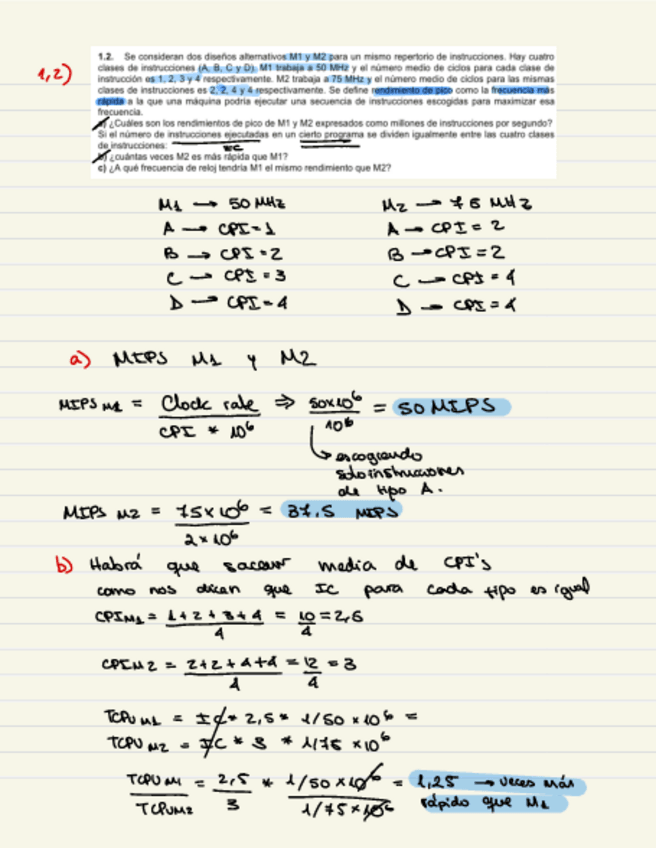 1,2)
1.2. Se consideran dos diseños alternativos M1 y M2 para un mismo repertorio de instrucciones. Hay cuatro
clases de instrucciones (A, B, C y D). M1 trabaja a 50 MHz y el número medio de ciclos para cada clase de
instrucción es 1, 2, 3 y 4 respectivamente. M2 trabaja a 75 MHz y el número medio de ciclos para las mismas
clases de instrucciones es 2, 2, 4 y 4 respectivamente. Se define rendimiento de pico como la frecuencia más
rápida a la que una máquina podría ejecutar una secuencia de instrucciones escogidas para maximizar esa
frecuencia.
a) ¿Cuáles son los rendimientos de pico de M1 y M2 expresados como millones de instrucciones por segundo?
Si el número de instrucciones ejecutadas en un cierto programa se dividen igualmente entre las cuatro clases
de instrucciones:
b) ¿cuántas veces M2 es más rápida que M1?
c) ¿A qué frecuencia de reloj tendría M1 el mismo rendimiento que M2?
M1 → 50 MHz M2 → 75 MHz
A → CPI = 1 A → CPI = 2
B → CPI = 2 B → CPI = 2
C → CPI = 3 C → CPI = 4
D → CPI = 4 D → CPI = 4
a) MIPS M1 y M2
MIPS M1 = Clock rate / CPI * 10^6 ⇒ 50x10^6 / 10^6 = 50 MIPS
↳ escogiendo
solo instrucciones
de tipo A.
MIPS M2 = 75x10^6 / 2x10^6 = 37,5 MIPS
b) Habrá que sacar media de CPI's
como nos dicen que IC para cada tipo es igual
CPI M1 = 1+2+3+4 / 4 = 10/4 = 2,5
CPI M2 = 2+2+4+4 / 4 = 12/4 = 3
TCPU M1 = IC * 2,5 * 1/50 x10^6 =
TCPU M2 = IC * 3 * 1/75 x10^6
TCPU M1 / TCPU M2 = 2,5/3 * 1/50x10^6 / 1/75x10^6 = 1,25 → veces más
rápido que M1